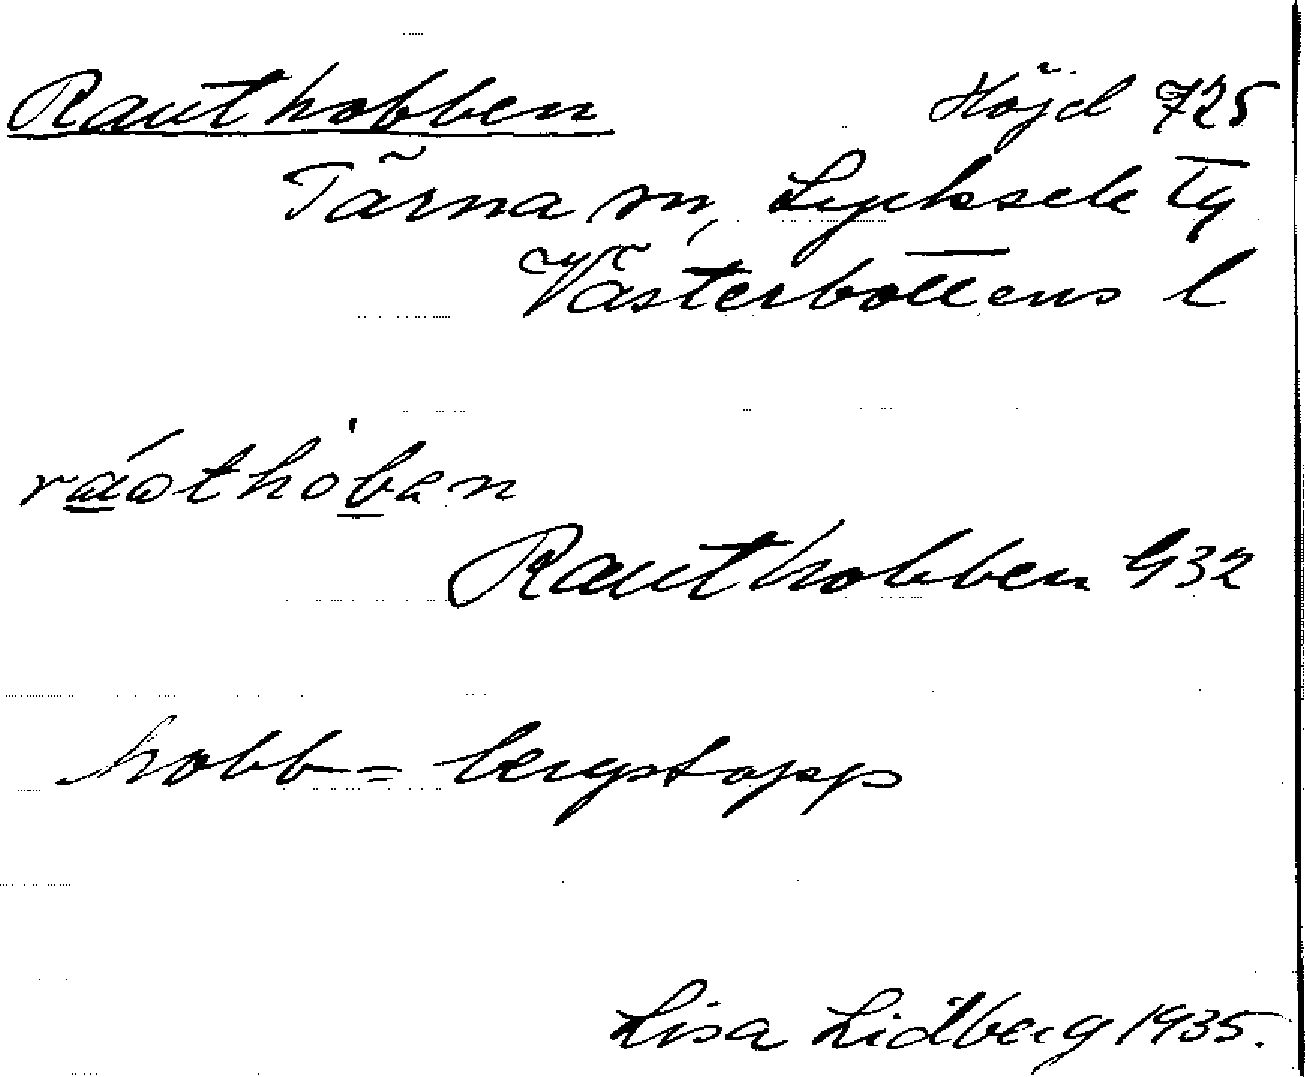 Rauthobben Höjd 725
Tärna sn, Lycksele Tg
Västerbottens l
ráothòben
Rauthobben G32
hobb = bergstopp
Lisa Lidberg 1935.